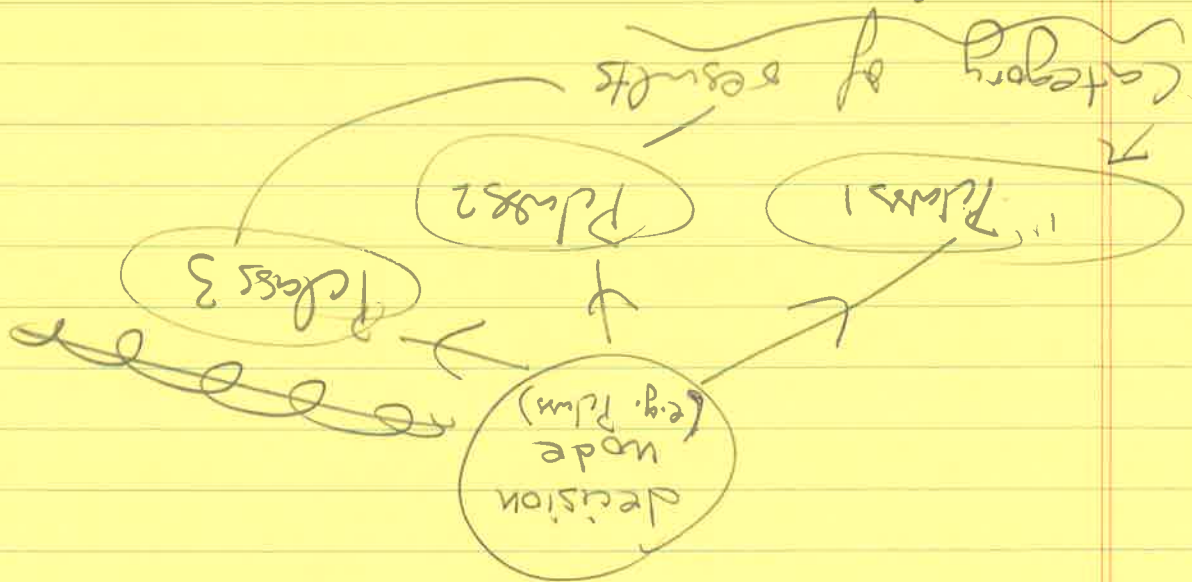 decision
node
(e.g. Pclass)
Pclass 3
Pclass 2
Pclass 1
Category of results